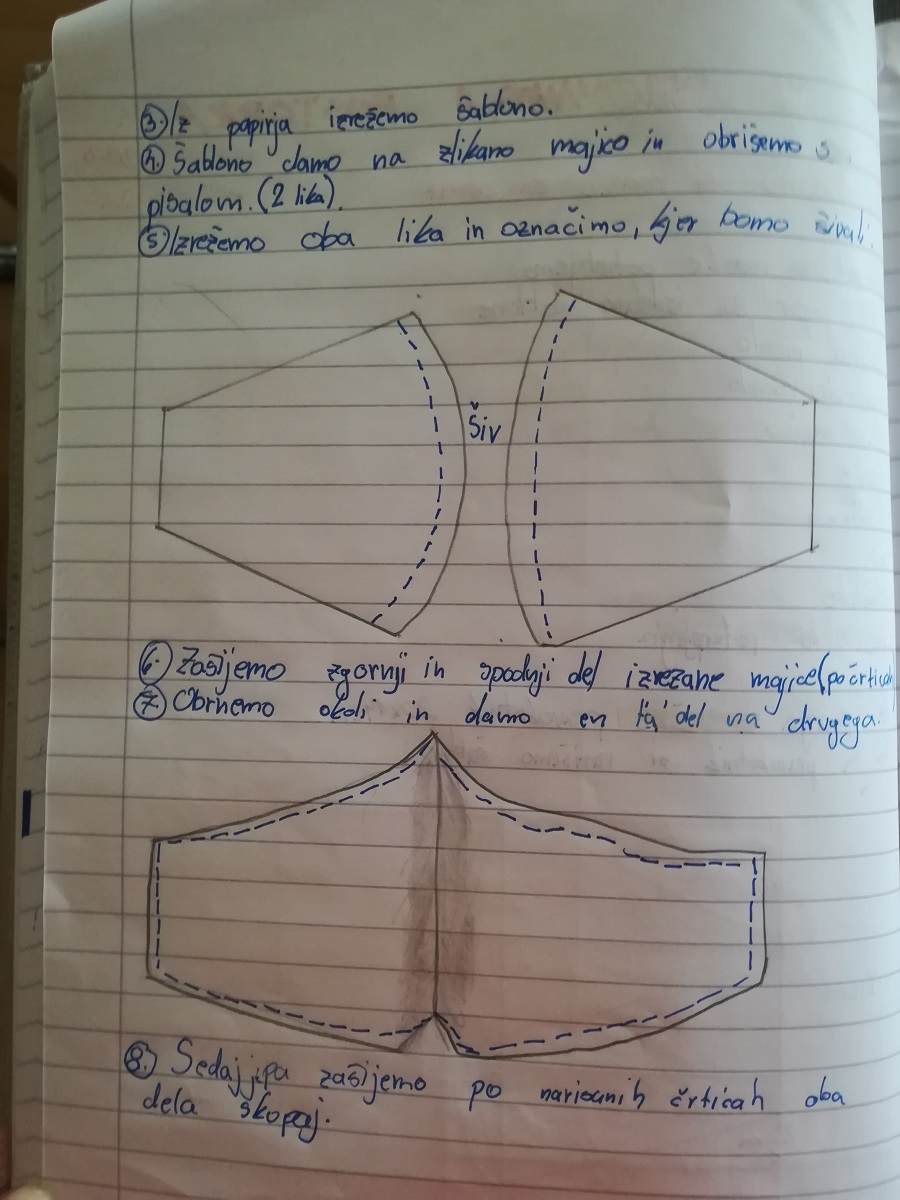 3. Iz papirja izrežemo šablono.
4. Šablono damo na zlikano majico in obrišemo s
pisalom. (2 lika).
5. Izrežemo oba lika in označimo, kjer bomo šivali.
Šiv
6. Zašijemo zgornji in spodnji del izrezane majice (po črticah)
7. Obrnemo okoli in damo en del na drugega.
8. Sedaj pa zašijemo po narisanih črticah oba
dela skupaj.